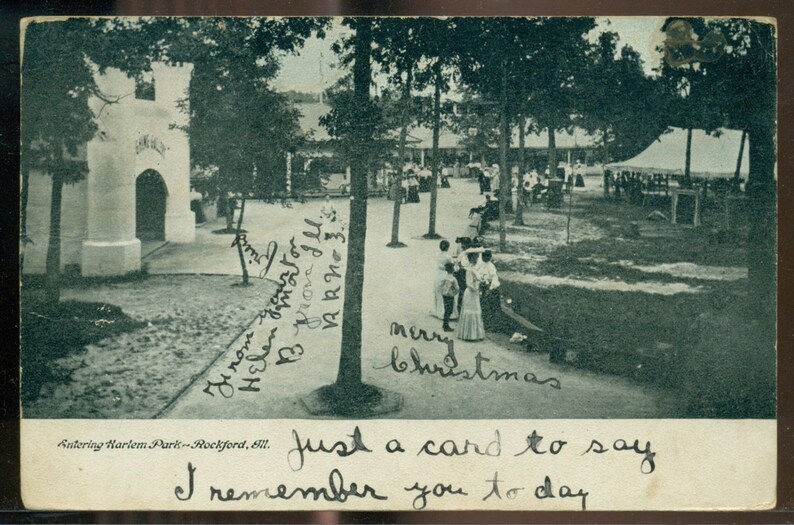 From your friend
Helen Morton
Byron Ill.
R R No 3.
Merry
Christmas
Entering Harlem Park--Rockford, Ill.
Just a card to say
I remember you to day